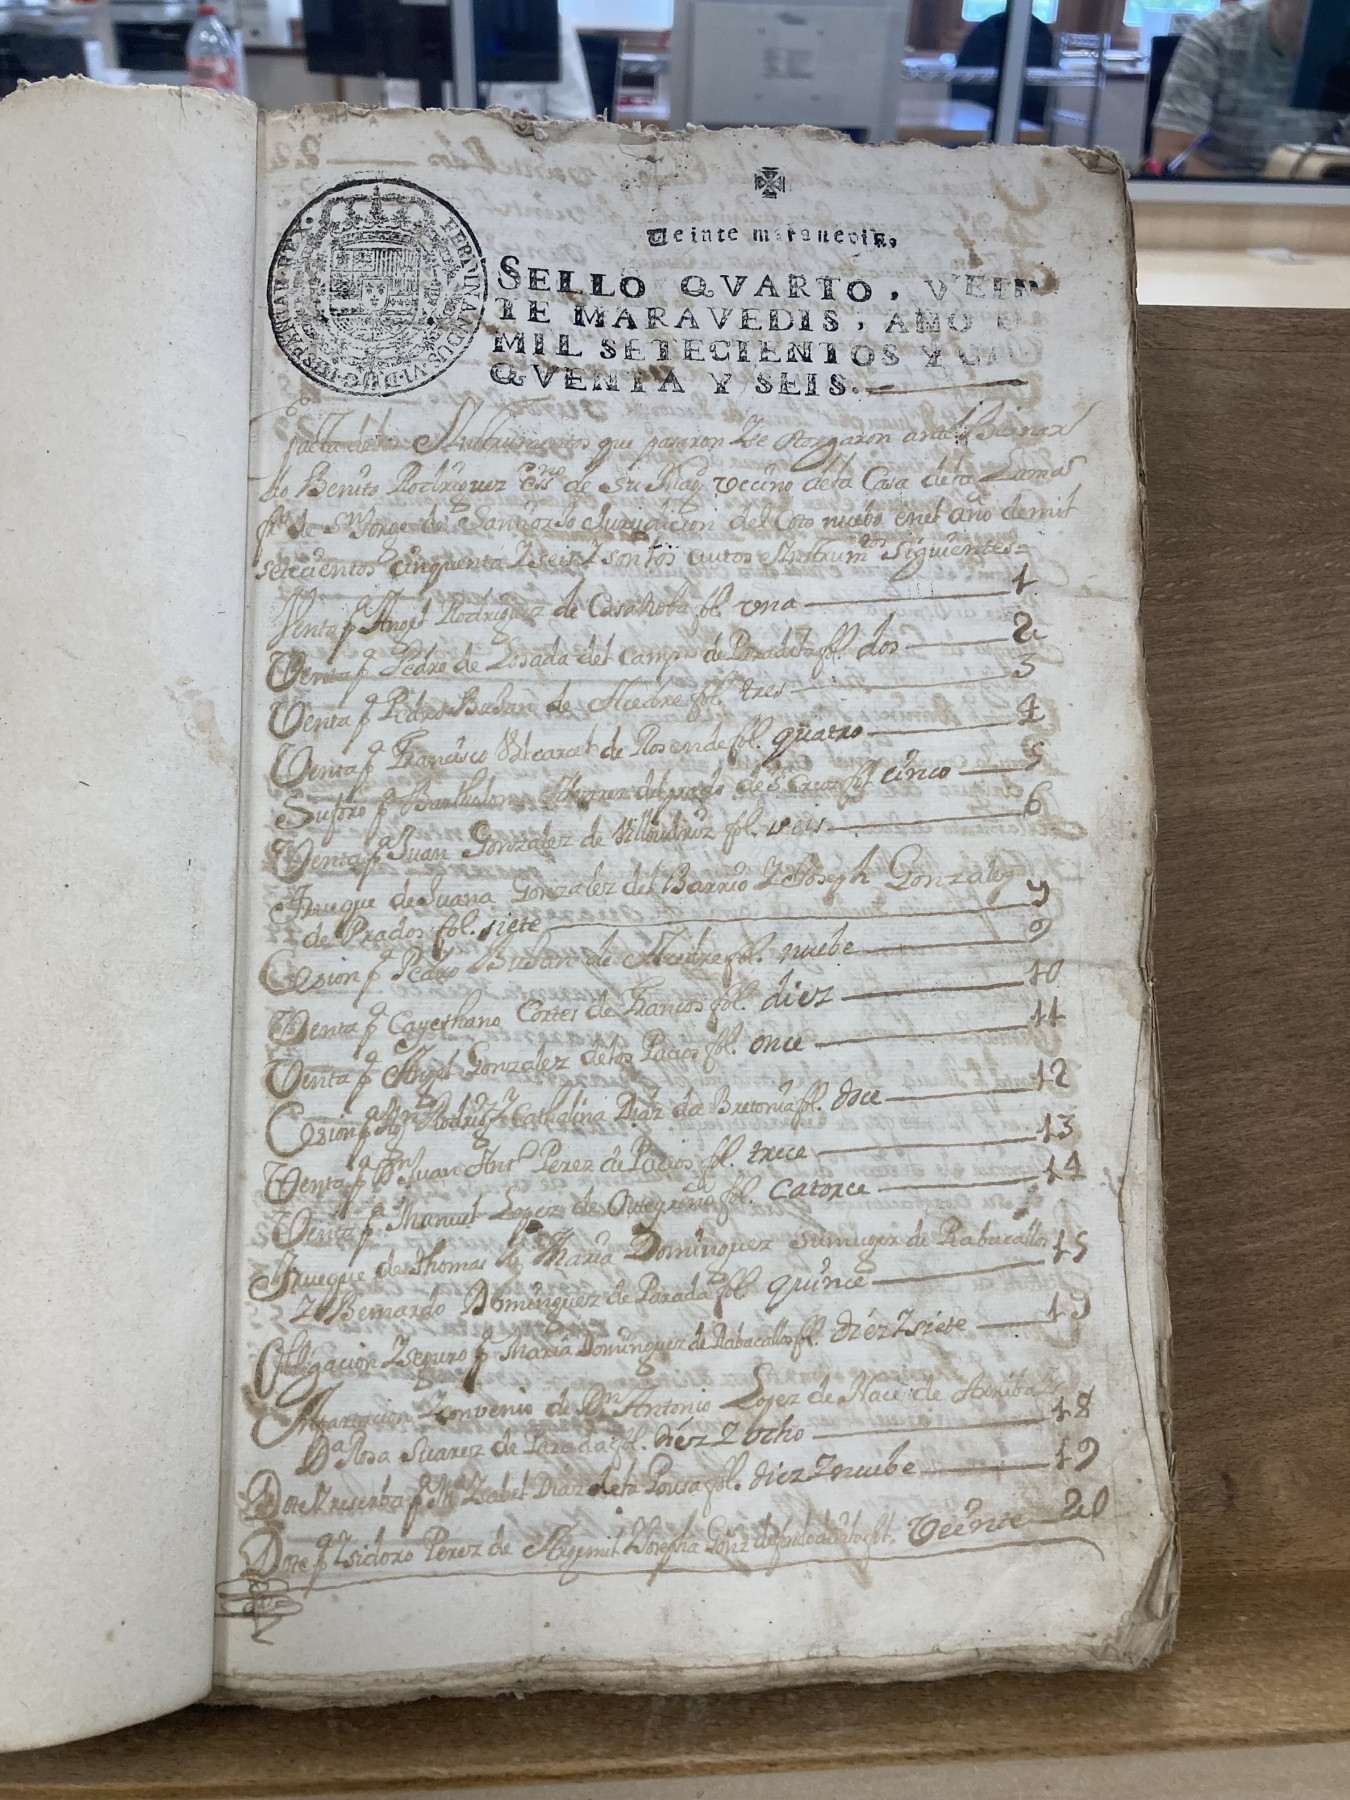 FERDINANDUS·VI·D·G·HISPANIAR·REX·
Veinte maravedis,
SELLO QVARTO, VEIN
TE MARAVEDIS, AÑO D
MIL SETECIENTOS Y CI
QVENTA Y SEIS.
que pasaron Ze otorgaron ante Bernar
do Benito Rodriguez Essno de Su Magd vecino de la Casa de la Lama
de Sn Jorge de Jurisdicion del Coto nuebo en el año de mil
setecientos cinquenta Z seis Z son los autos Ynstrumtos siguientes=
Venta pa Angel Rodriguez de Casanoba fol. una 1
Venta pa Pedro de Losada del Campo de Paradela fol. dos 2
Venta pa Pedro Buban de Acedre fol. tres 3
Venta pa Francisco de Rosende fol. quatro 4
Suforo pa Bartholome Albarez del prado de Sta Cruz fol. cinco 5
Venta pa Juan Gonzalez de fol. seis 6
Trueque de Juana Gonzalez del Barrio Z Joseph Gonzalez
de Prados fol. siete 7
Cesion pa Pedro Buban de Acedre fol. nuebe 9
Venta pa Cayethano Cortes de Francos fol. diez 10
Venta pa Angel Gonzalez de los Pacios fol. once 11
Cesion pa Rodriz Z Cathalina Diaz da Bretonia fol. doce 12
Venta pa Dn Juan Antº Perez de Pacios fol. trece 13
Venta pa Manuel Lopez de fol. catorce 14
Trueque de Thomas Maria Dominguez su muger de Rabacallos
Z Bernardo Dominguez de Parada fol. quince 15
Obligacion Z seguro pa Maria Dominguez de Rabacallos fol. diez Z siete 17
Convenio de Dn Antonio Lopez de Nace de Arriba Z
Da Rosa Suarez de Parada fol. diez Z ocho 18
Dote Z reserba pa Ysabel Diaz de la Pousa fol. diez Z nuebe 19
Dote pa Ysidoro Perez de Argemil Z Josepha Gonz fol. veinte 20